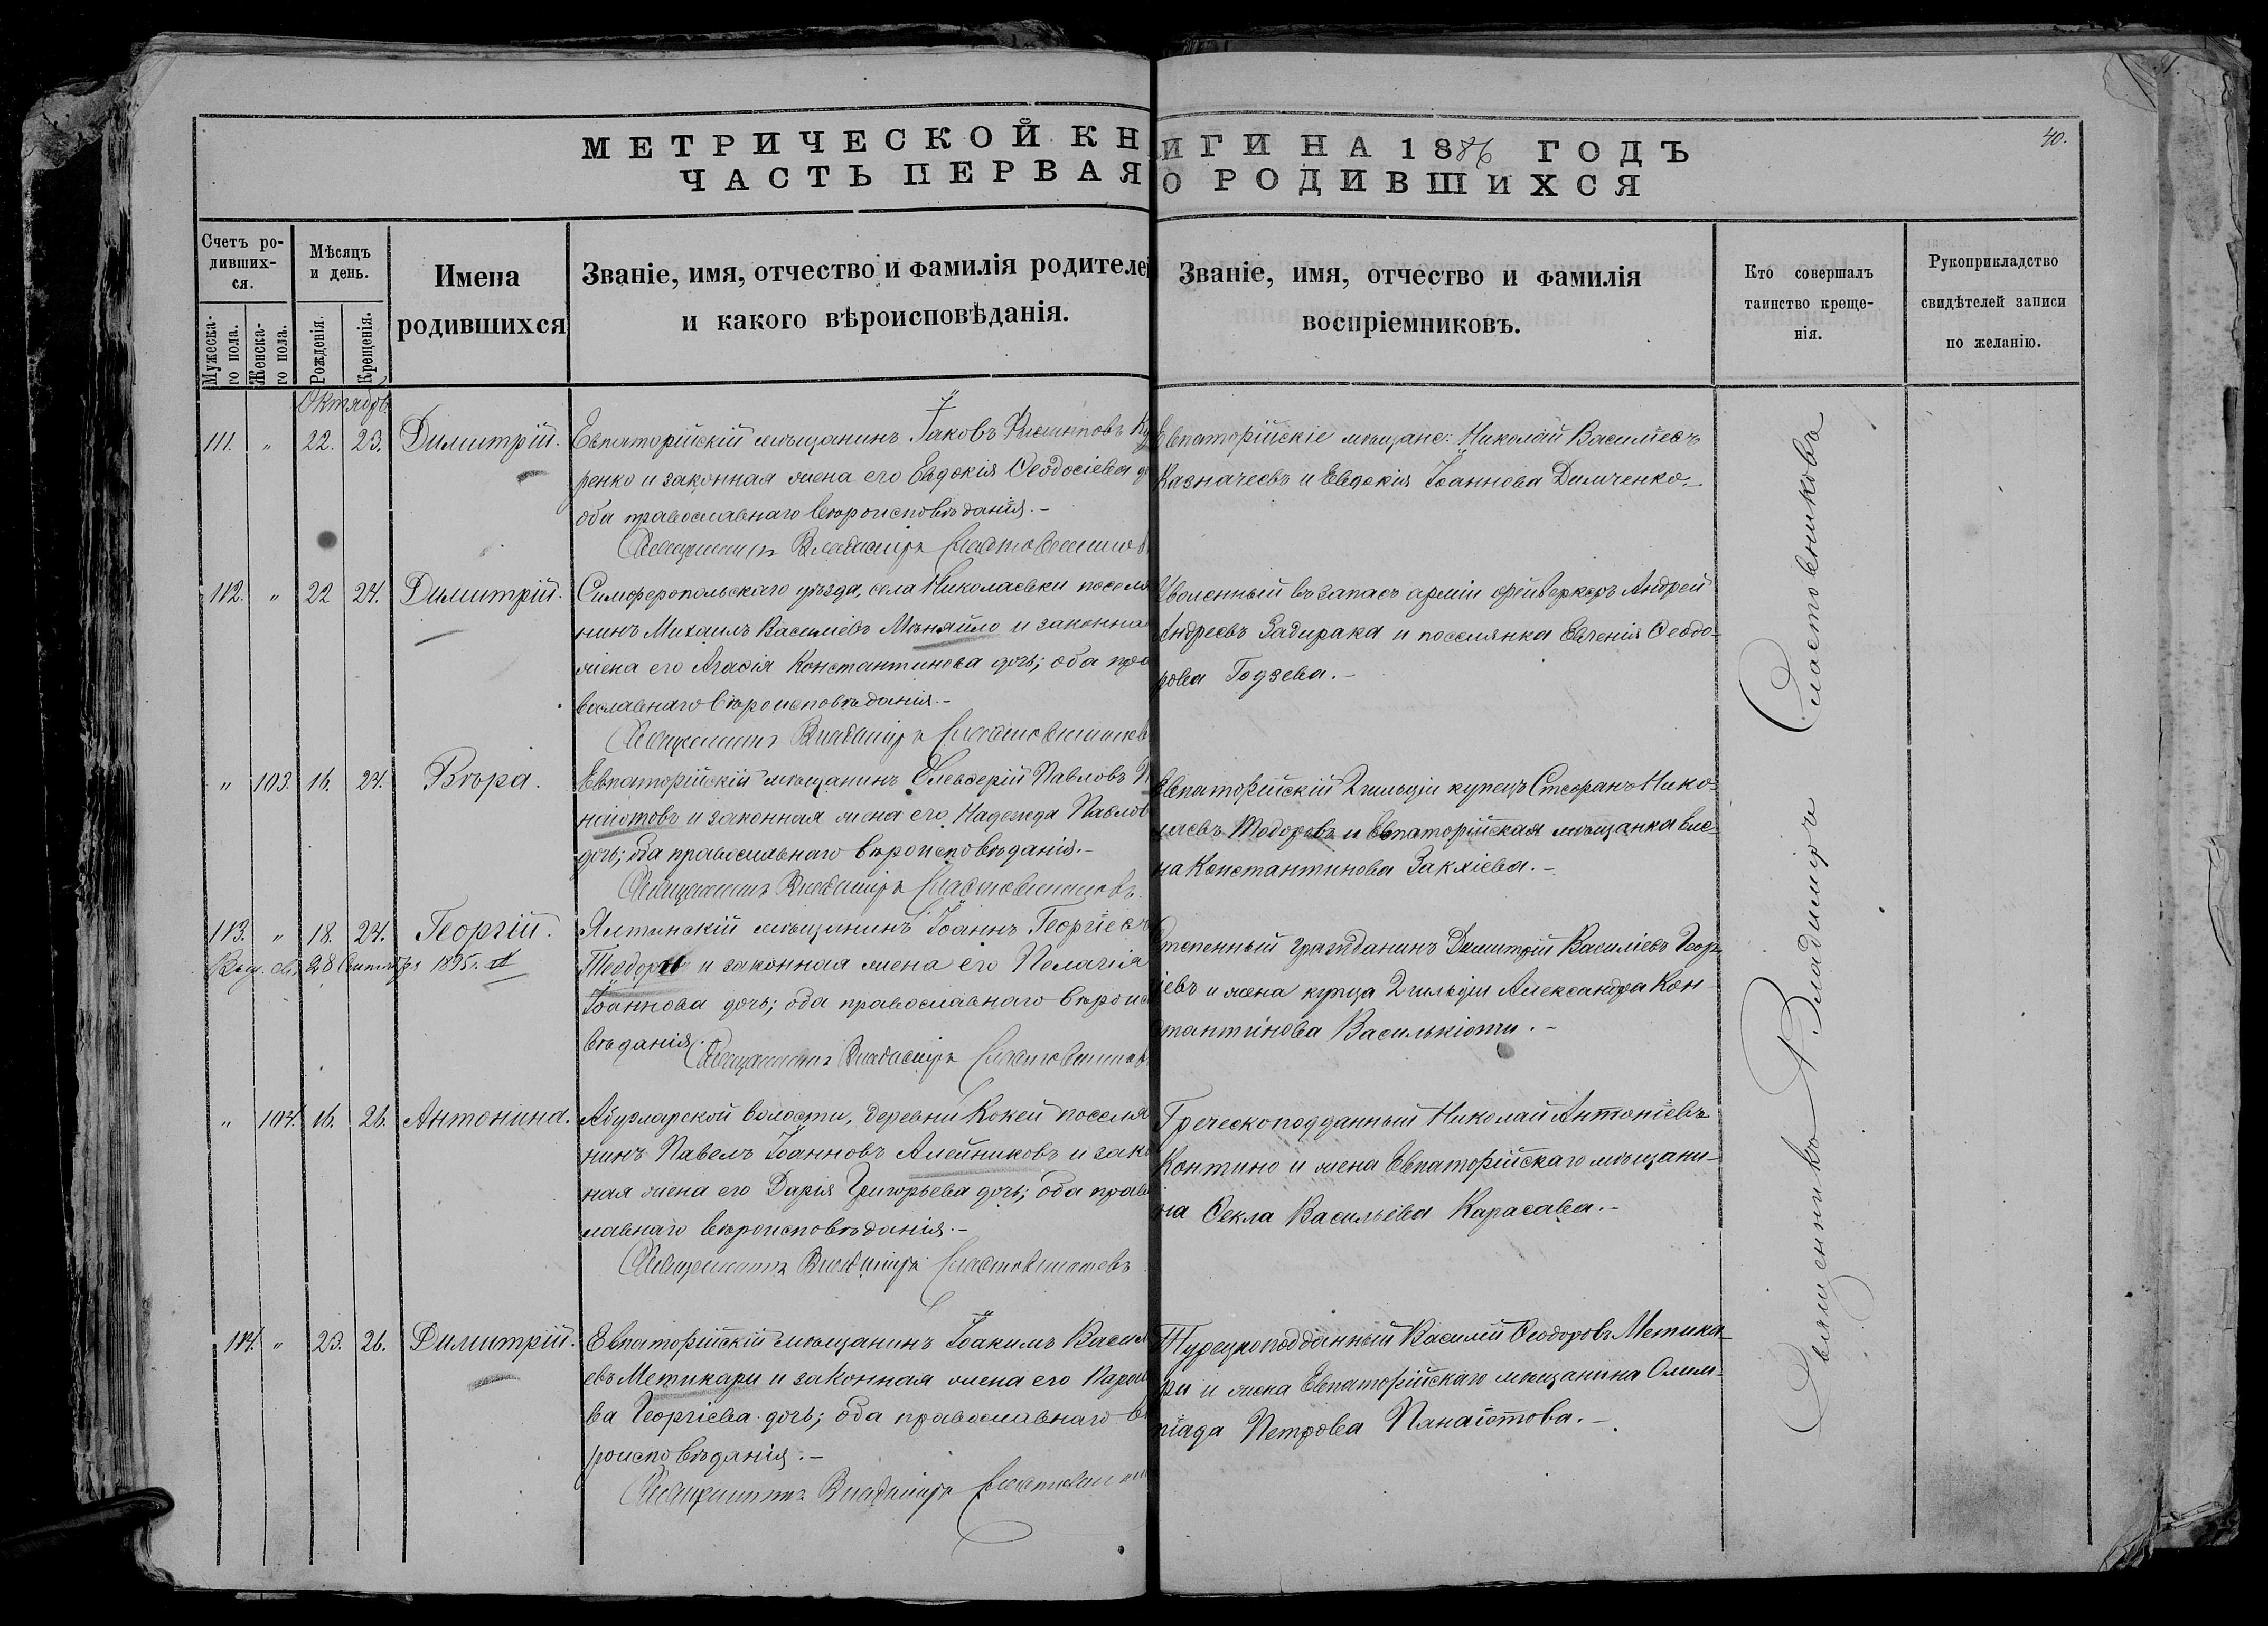 МЕТРИЧЕСКОЙ КНИГИ НА 1886 ГОДЪ
40.
ЧАСТЬ ПЕРВАЯ О РОДИВШИХСЯ
Счетъ ро-
дивших-
ся.
Мужеска-
го пола.
Женска-
го пола.
Мѣсяцъ
и день.
Рожденія.
Крещенія.
Имена
родившихся
Званіе, имя, отчество и фамилія родителей
и какого вѣроисповѣданія.
Званіе, имя, отчество и фамилія
воспріемниковъ.
Кто совершалъ
таинство креще-
нія.
Рукоприкладство
свидѣтелей записи
по желанію.
Октябрь
111. " 22. 23. Димитрій.
Евпаторійскій мѣщанинъ Іаковъ Филипповъ
ренко и законная жена его Евдокія Ѳеодосіева
оба православнаго вѣроисповѣданія.-
Священникъ Владиміръ Сластовниковъ
Евпаторійскіе мѣщане: Николай Васильевъ
Казначеевъ и Евдокія Іоаннова Димченко.-
112. " 22 24. Димитрій.
Симферопольскаго уѣзда, села Николаевки поселя
нинъ Михаилъ Василіевъ Мѣняйло и законна
жена его Агаѳія Константинова дочь; оба пра
вославнаго вѣроисповѣданія.-
Священникъ Владиміръ Сластовниковъ
Уволенный въ запасъ арміи фейверкеръ Андрей
Андреевъ Задирака и поселянка Евгенія Ѳеодо-
рова Годзева.-
" 103. 16. 24. Вѣра.
Евпаторійскій мѣщанинъ Елевѳерій Павловъ
наіотовъ и законная жена его Надежда Павлов
дочь; оба православнаго вѣроисповѣданія.-
Священникъ Владиміръ Сластовниковъ
Евпаторійскій 2 гильдіи купецъ Стефанъ Нико-
лаевъ Тодоровъ и Евпаторійская мѣщанка Еле-
на Константинова Закхіева.-
113. " 18. 24. Георгій.
Выд. св. 28 Сентября 1895.
Ялтинскій мѣщанинъ Іоаннъ Георгіевъ
Теодори и законная жена его Пелагія
Іоаннова дочь; оба православнаго вѣроис
вѣданія.
Священникъ Владиміръ Сластовниковъ
Степенный гражданинъ Димитрій Василіевъ Геор-
іевъ и жена купца 2 гильдіи Александра Кон-
стантинова Василькіоти.-
" 104. 16. 26. Антонина.
Абузларской волости, деревни Кокей поселя
нинъ Павелъ Іоанновъ Алейниковъ и зак
ная жена его Дарія Григорьева дочь; оба прав
лавнаго вѣроисповѣданія.-
Священникъ Владиміръ Сластовниковъ
Греческоподданный Николай Антоніевъ
Контино и жена Евпаторійскаго мѣщани-
на Ѳекла Васильева Карасава.-
114. " 23. 26. Димитрій.
Евпаторійскій мѣщанинъ Іоакимъ Васил
евъ Метикари и законная жена его Параске
ва Георгіева дочь; оба православнаго вѣ
роисповѣданія.-
Священникъ Владиміръ Сластовниковъ
Турецкоподданный Василій Ѳеодоровъ Метика-
ри и жена Евпаторійскаго мѣщанина Олим-
піада Петрова Панаіотова.-
Священникъ Владиміръ Сластовниковъ